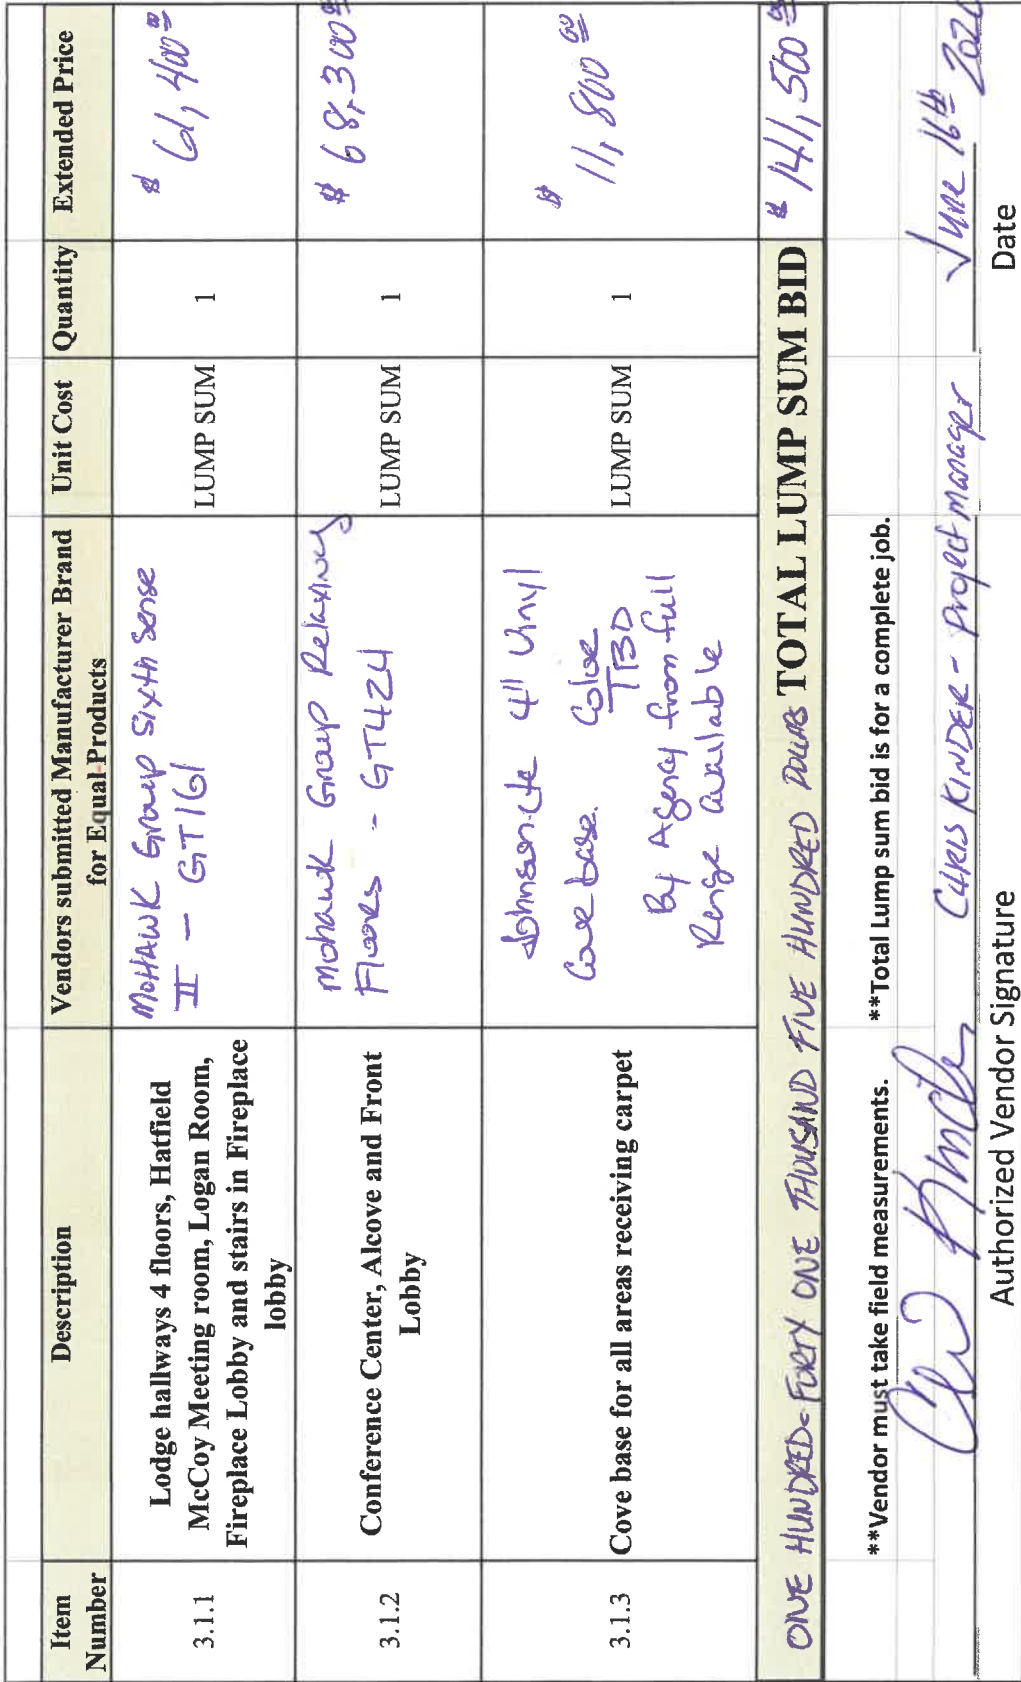 Item Number
Description
Vendors submitted Manufacturer Brand for Equal Products
Unit Cost
Quantity
Extended Price
3.1.1
Lodge hallways 4 floors, Hatfield
McCoy Meeting room, Logan Room,
Fireplace Lobby and stairs in Fireplace
lobby
MOHAWK Group Sixth Sense
II - GT161
LUMP SUM
1
$ 61,400.00
3.1.2
Conference Center, Alcove and Front
Lobby
Mohawk Group Relaxing
Floors - GT424
LUMP SUM
1
$ 68,300.00
3.1.3
Cove base for all areas receiving carpet
Johnsonite 4" Vinyl
Cove base. Color
TBD
By Agency from full
Range available
LUMP SUM
1
$ 11,800.00
ONE HUNDRED-FORTY ONE THOUSAND FIVE HUNDRED DOLLARS TOTAL LUMP SUM BID $ 141,500.00
**Vendor must take field measurements. **Total Lump sum bid is for a complete job.
CHRIS KINDER - Project Manager June 16th
Authorized Vendor Signature Date